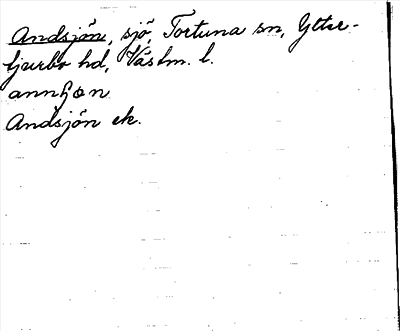 Andsjön, sjö, Tortuna sn, Ytter-
tjurbo hd, Västm. l.
Andsjön ek.